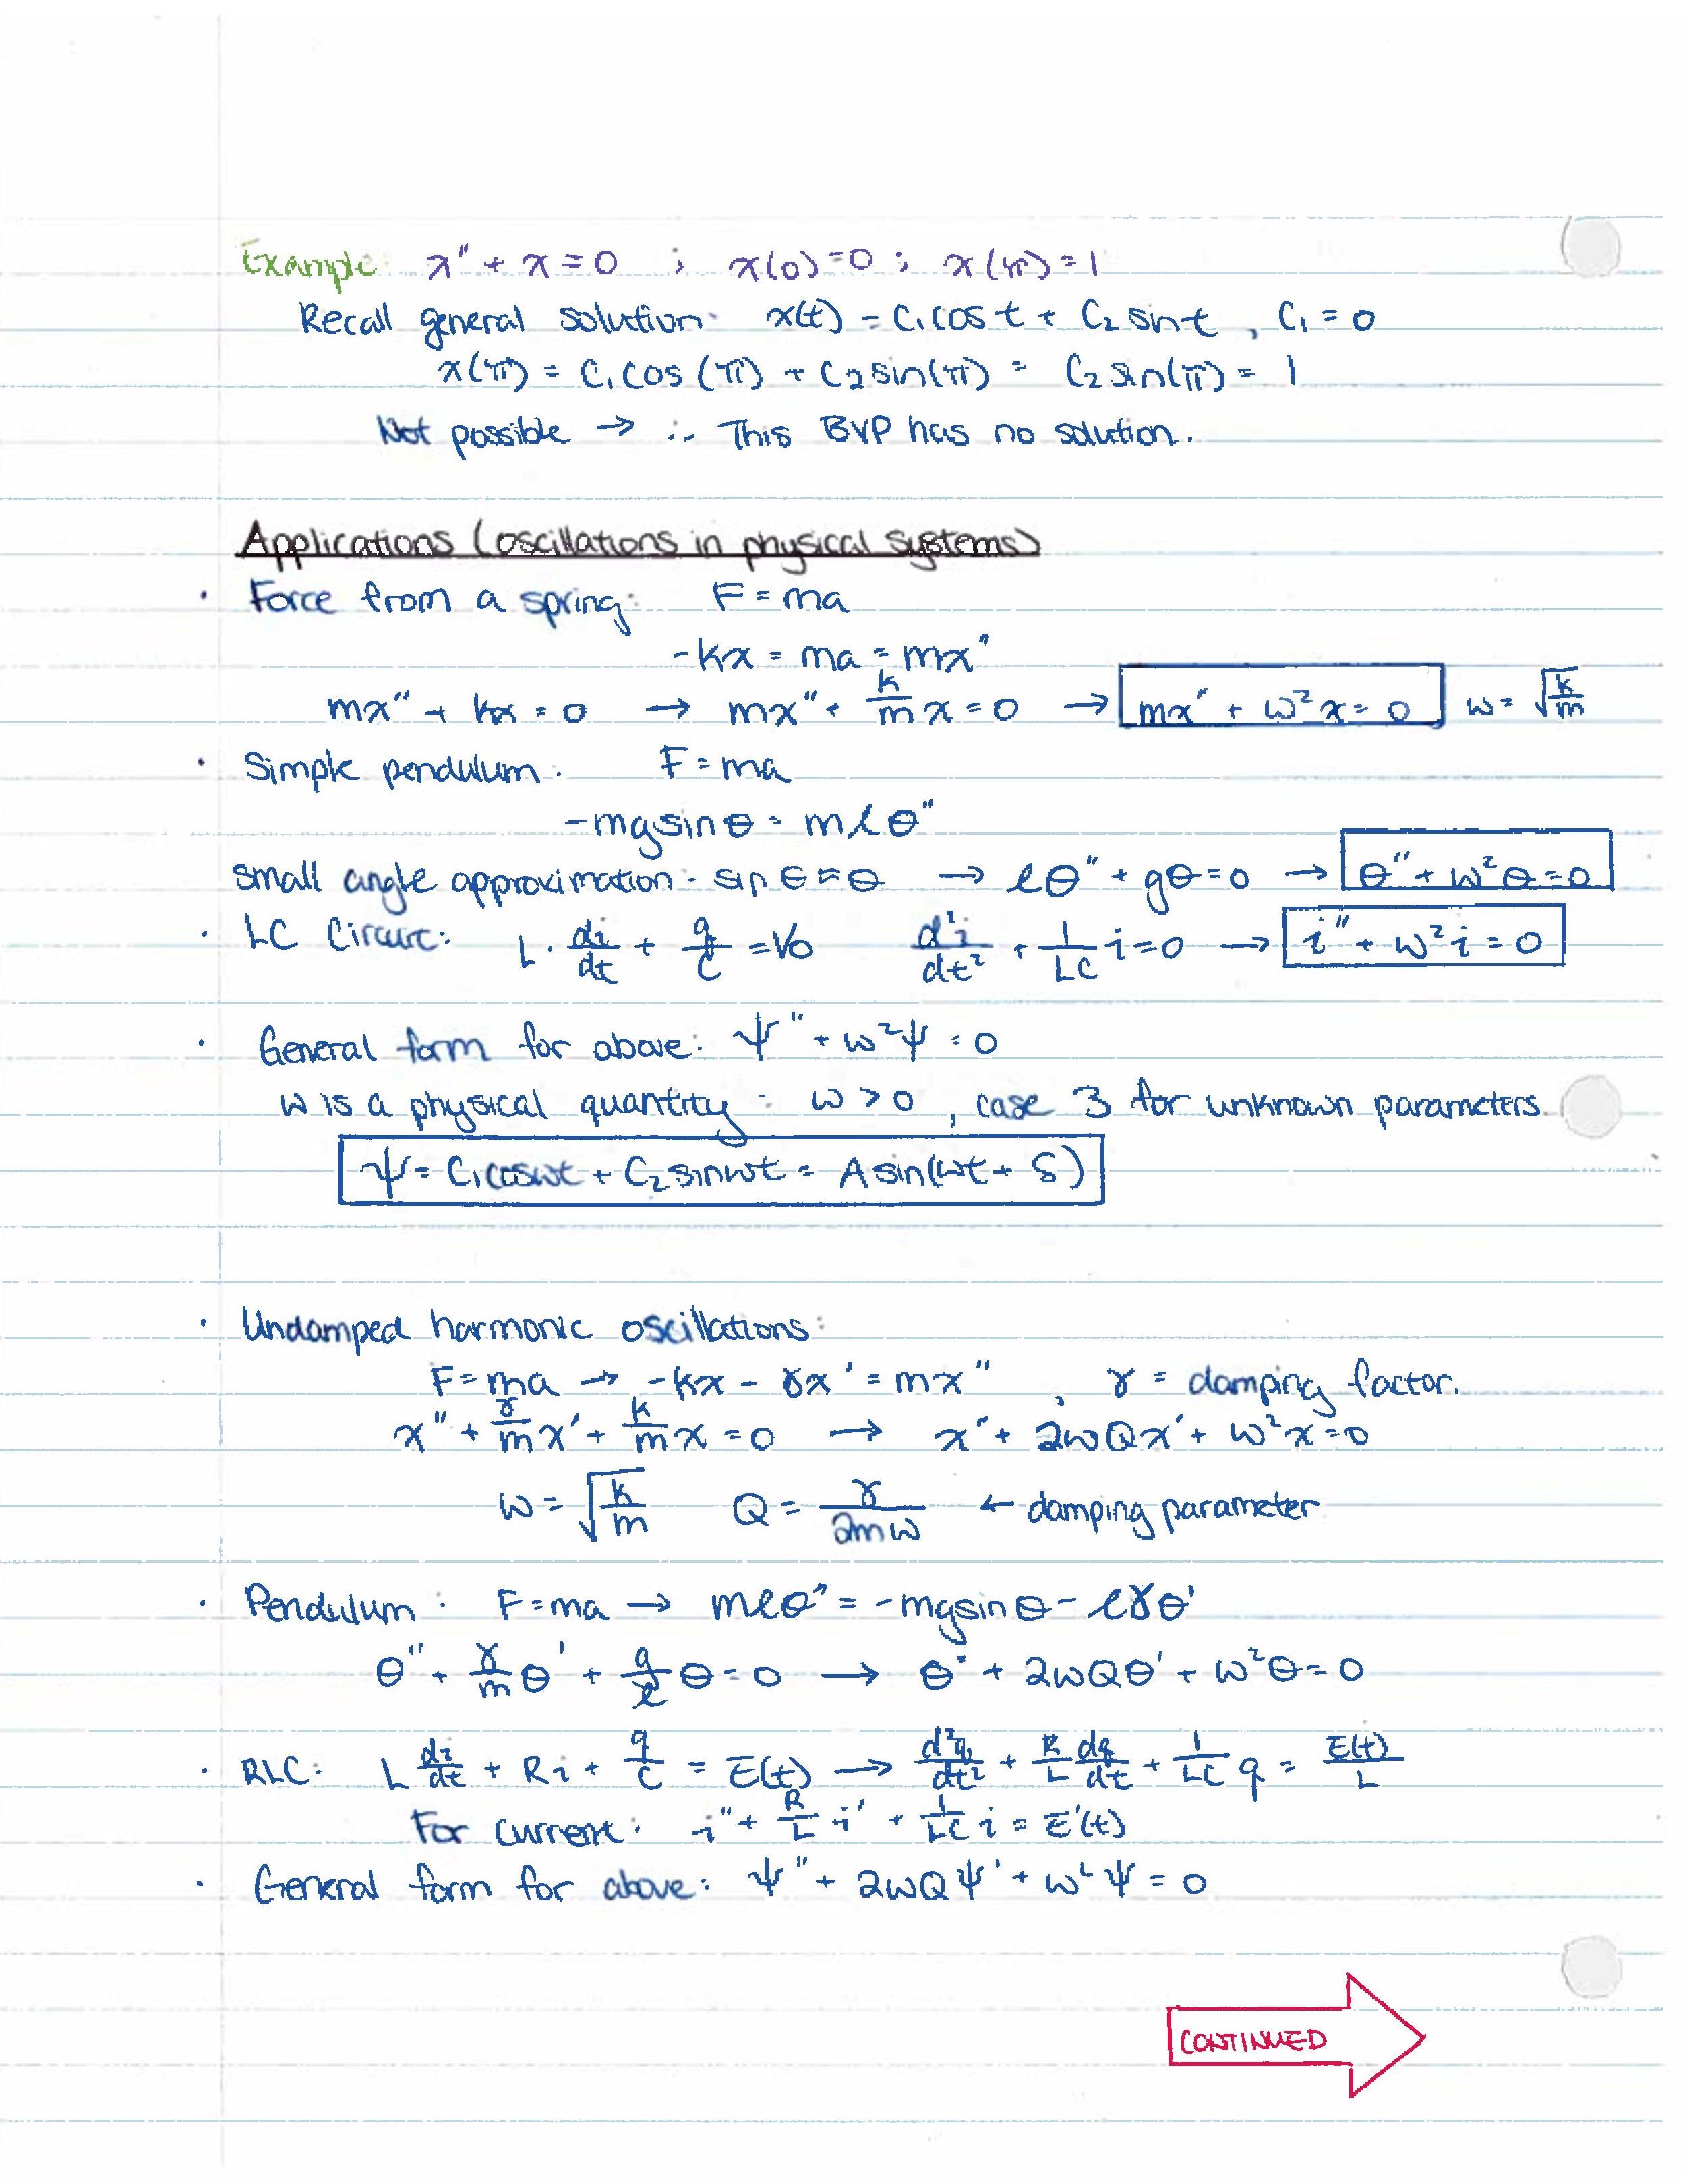 Example: x'' + x = 0 ; x(0)=0 ; x(π)=1
Recall general solution: x(t) = C₁cos t + C₂ sin t , C₁ = 0
x(π) = C₁ cos(π) + C₂ sin(π) = C₂ sin(π) = 1
Not possible → ∴ This BVP has no solution.
Applications (oscillations in physical systems)
· Force from a spring: F = ma
-kx = ma = mx''
mx'' + kx = 0 → mx'' + k/m x = 0 → mx'' + ω²x = 0 ω = √(k/m)
· Simple pendulum: F = ma
-mg sin θ = mℓθ''
small angle approximation - sin θ ≈ θ → ℓθ'' + gθ = 0 → θ'' + ω²θ = 0
· LC Circuit: L · di/dt + q/C = V₀ d²i/dt² + 1/LC i = 0 → i'' + ω²i = 0
· General form for above: ψ'' + ω²ψ = 0
ω is a physical quantity: ω > 0 , case 3 for unknown parameters.
ψ = C₁cos ωt + C₂ sin ωt = A sin(ωt + δ)
· Undamped harmonic oscillations:
F = ma → -kx - γx' = mx'' , γ = damping factor.
x'' + γ/m x' + k/m x = 0 → x'' + 2ωQx' + ω²x = 0
ω = √(k/m) Q = γ/2mω ← damping parameter
· Pendulum: F = ma → mℓθ'' = -mg sin θ - ℓγθ'
θ'' + γ/m θ' + g/ℓ θ = 0 → θ'' + 2ωQθ' + ω²θ = 0
· RLC: L di/dt + Ri + q/C = E(t) → d²q/dt² + R/L dq/dt + 1/LC q = E(t)/L
For current: i'' + R/L i' + 1/LC i = E'(t)
· General form for above: ψ'' + 2ωQψ' + ω²ψ = 0
CONTINUED